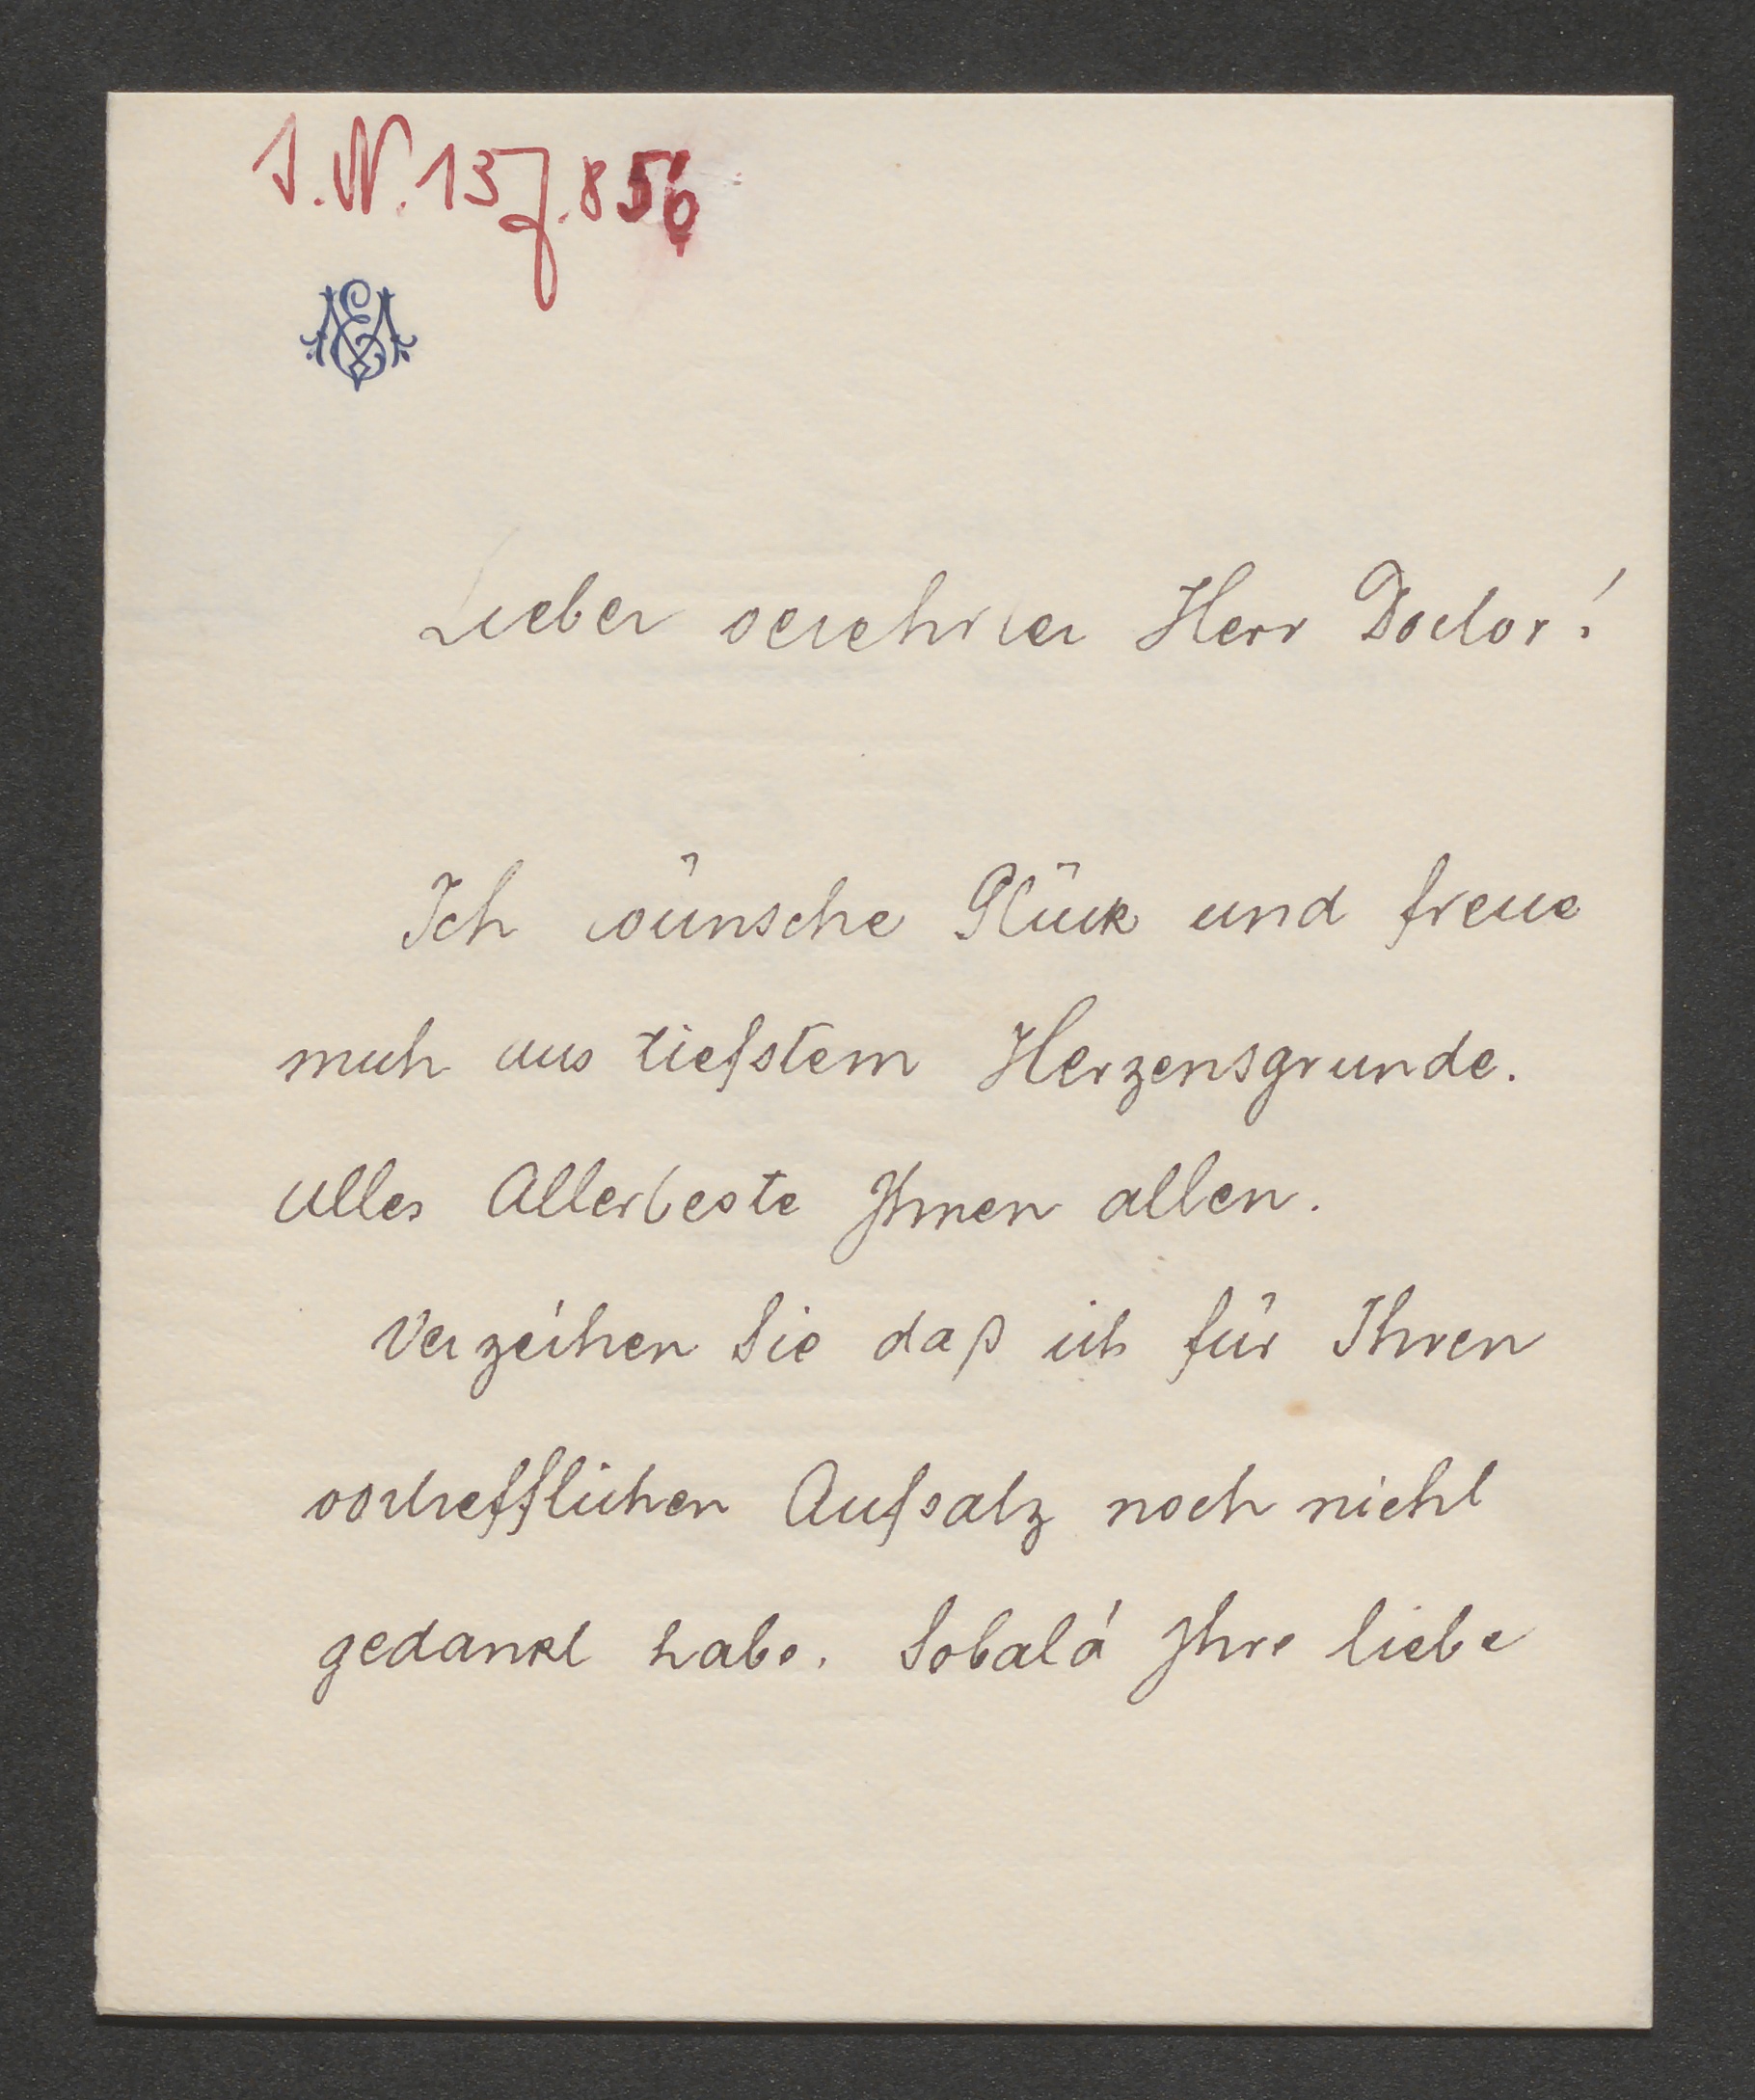 I.N. 137.856
Lieber verehrter Herr Doctor!
Ich wünsche Glück und freue
mich aus tiefstem Herzensgrunde.
Alles Allerbeste Ihnen allen.
Verzeihen Sie daß ich für Ihren
vortrefflichen Aufsatz noch nicht
gedankt habe. Sobald Ihre liebe